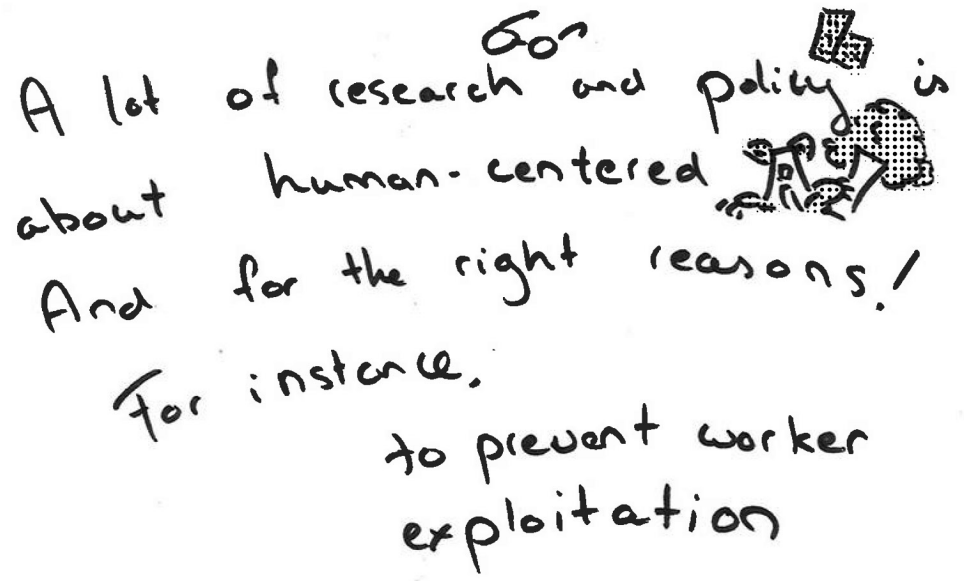 A lot of research and policy is
about human-centered AI
And for the right reasons!
For instance,
to prevent worker
exploitation